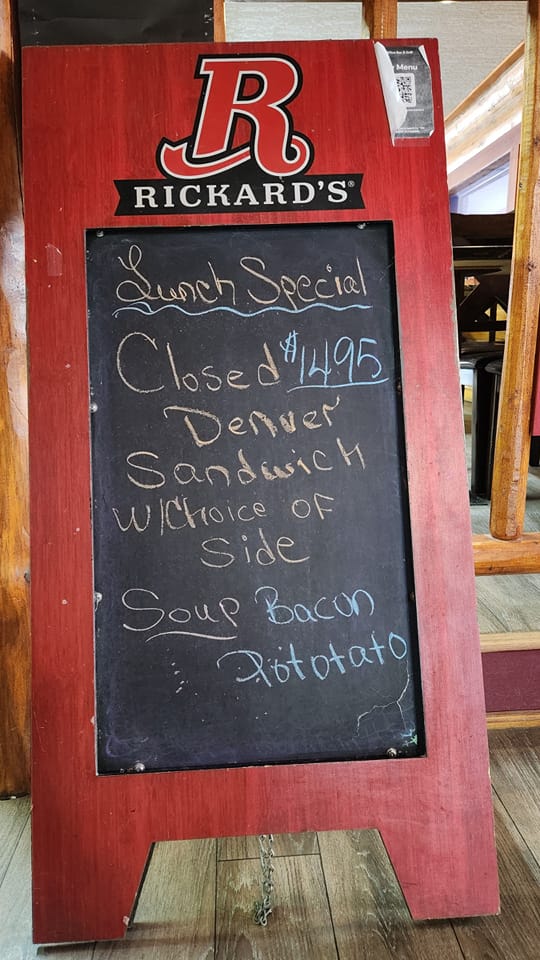 Menu
R
RICKARD'S®
Lunch Special
Closed $14.95
Denver
Sandwich
W/Choice OF
Side
Soup Bacon
Pototato